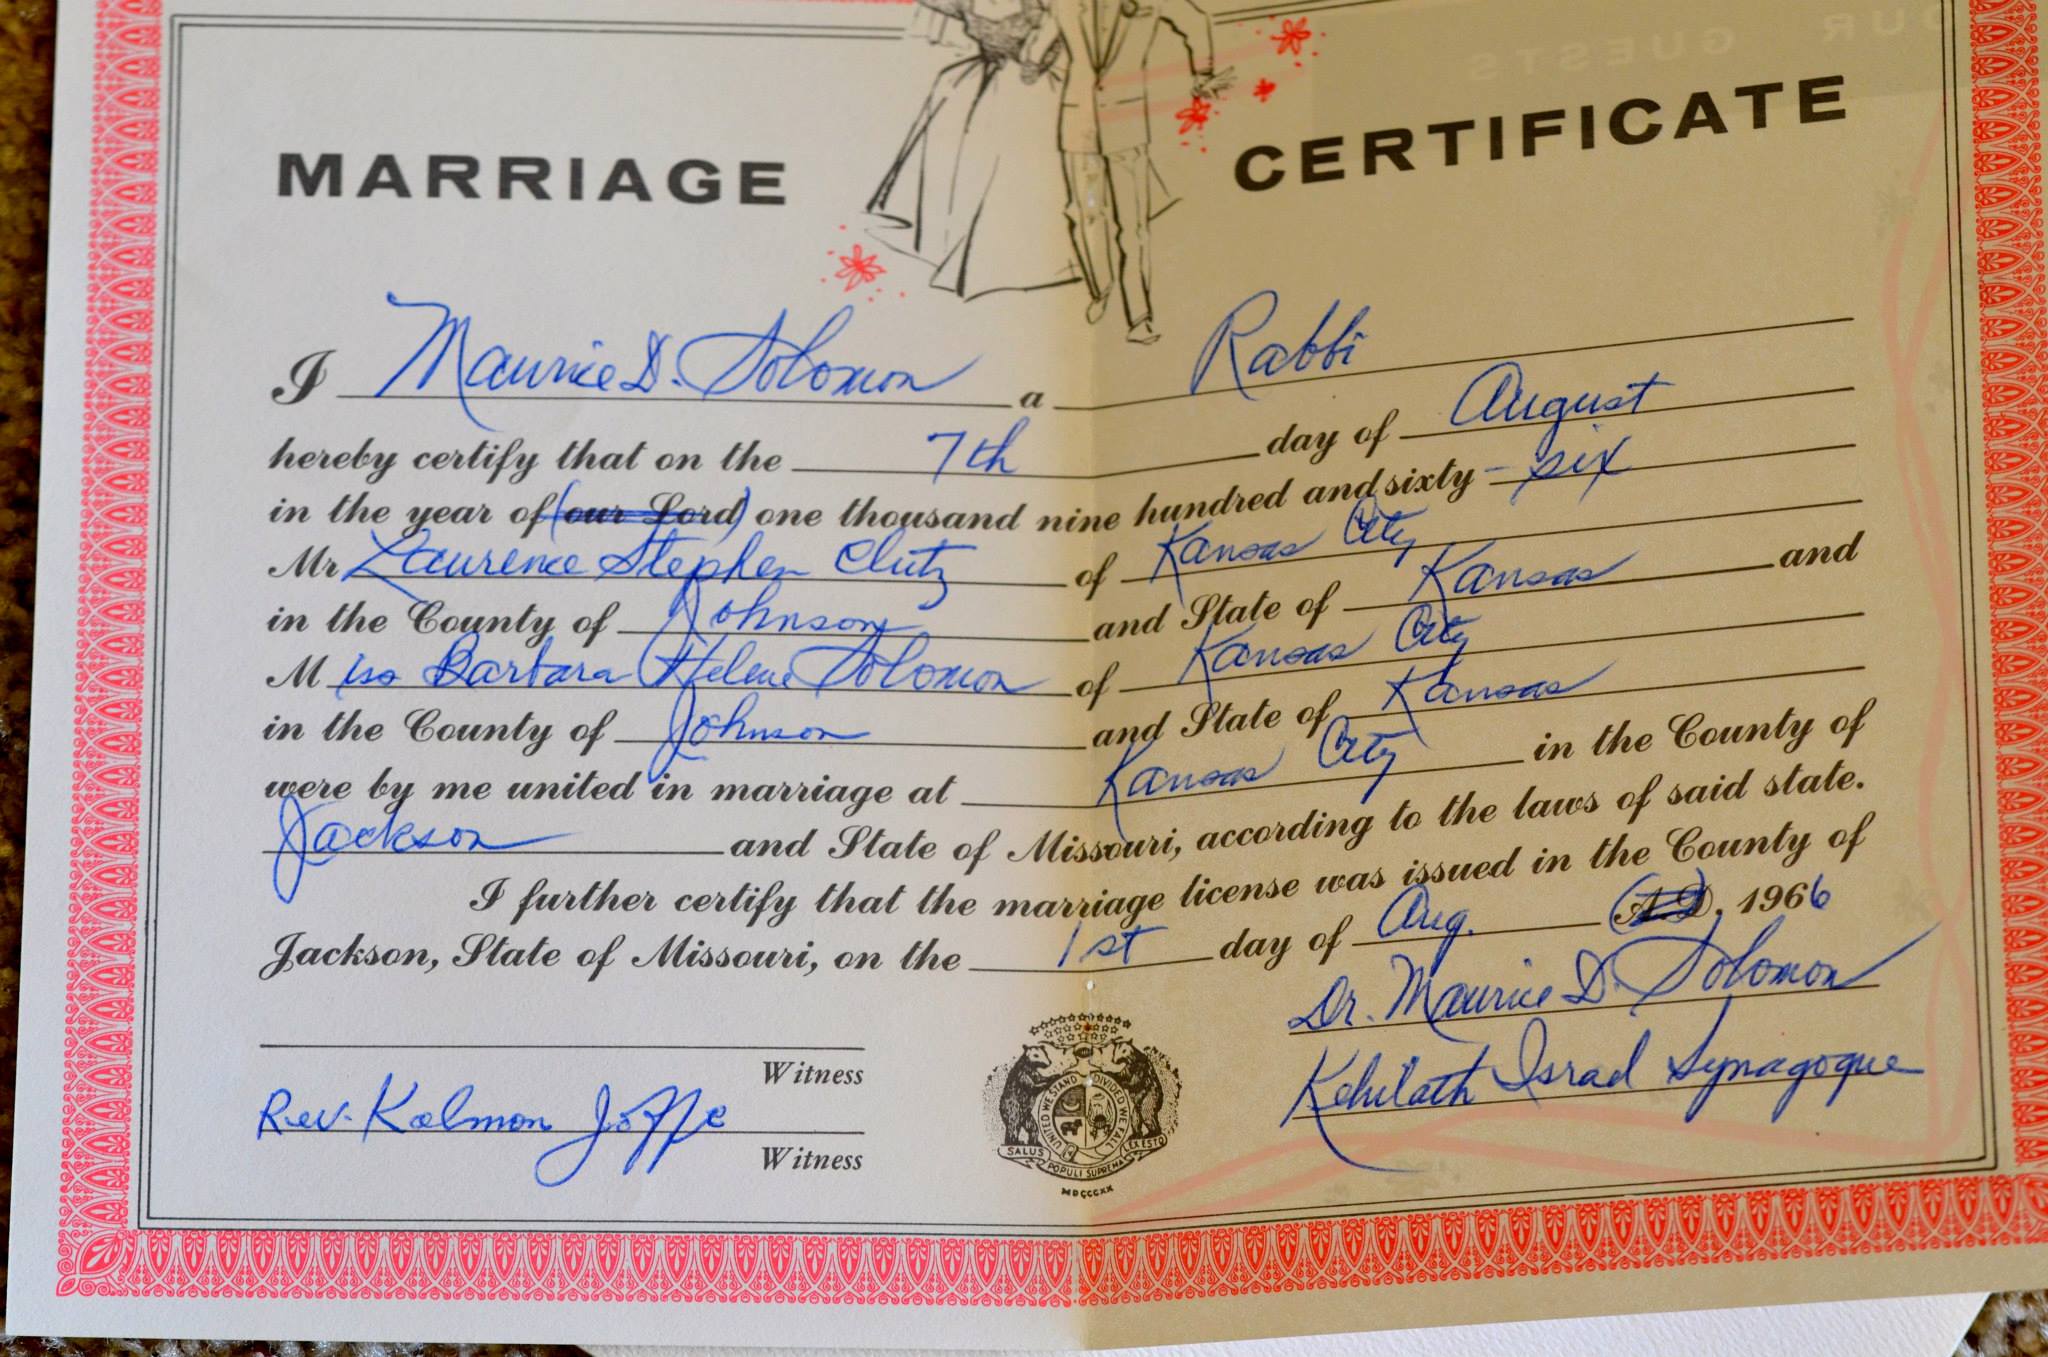 OUR GUESTS
MARRIAGE CERTIFICATE
I Maurice D. Solomon a Rabbi
hereby certify that on the 7th day of August
in the year of (our Lord) one thousand nine hundred and sixty - six
Mr Laurence Stephen Clutz of Kansas City
in the County of Johnson and State of Kansas and
Miss Barbara Helene Solomon of Kansas City
in the County of Johnson and State of Kansas
were by me united in marriage at Kansas City in the County of
Jackson and State of Missouri, according to the laws of said state.
I further certify that the marriage license was issued in the County of
Jackson, State of Missouri, on the 1st day of Aug. (A.D.), 1966
Dr. Maurice D. Solomon
Witness
Kehilath Israel Synagogue
Rev. Kalmon Joffe
Witness
UNITED WE STAND DIVIDED WE FALL
SALUS POPULI SUPREMA LEX ESTO
MDCCCXX